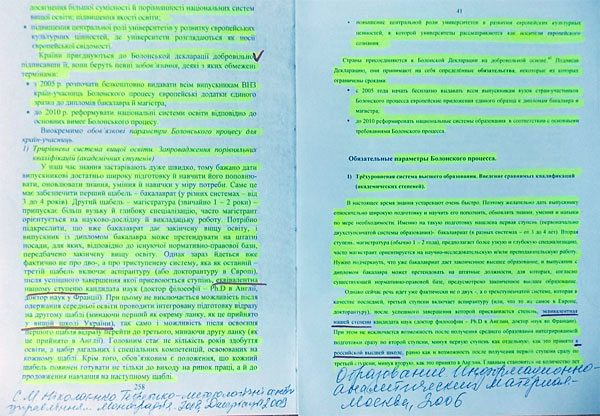 досягнення більшої сумісності й порівнянності національних систем
вищої освіти, підвищення якості освіти;
• підвищення центральної ролі університетів у розвитку європейських
культурних цінностей, де університети розглядаються як носії
європейської свідомості.
Країни приєднуються до Болонської декларації добровільно
підписавши її, вони беруть певні зобов'язання, деякі з яких обмежені
термінами:
• з 2005 р. розпочати безкоштовно видавати всім випускникам ВНЗ
країн-учасниць Болонського процесу європейські додатки єдиного
зразка до дипломів бакалавра й магістра,
• до 2010 р. реформувати національні системи освіти відповідно до
основних вимог Болонського процесу.
Виокремимо обов'язкові параметри Болонського процесу для
країн-учасниць.
1) Трирівнева система вищої освіти. Запровадження порівняльних
кваліфікацій (академічних ступенів)
У наш час знання застарівають дуже швидко, тому бажано дати
випускникові достатньо широку підготовку й навчити його поповню-
вати, оновлювати знання, уміння й навички у міру потреби. Саме це
має забезпечити перший щабель – бакалаврат (у різних системах – від
3 до 4 років). Другий щабель - магістратура (звичайно 1 – 2 роки) –
припускає більш вузьку й глибоку спеціалізацію, часто магістрант
орієнтується на науково-дослідну й викладацьку роботу. Потрібно
підкреслити, що вже бакалаврат дає закінчену вищу освіту, і
випускник із дипломом бакалавра може претендувати на штатні
посади, для яких, відповідно до існуючої нормативно-правової бази,
передбачено закінчену вищу освіту. Однак зараз йдеться вже
фактично не про дво-, а про триступеневу систему, яка як останній –
третій щабель включає аспірантуру (або докторантуру в Європі),
після успішного завершення якої присвоюється ступінь, еквівалентна
нашому ступеню кандидата наук (доктор філософії – Ph.D в Англії,
доктор наук у Франції). При цьому не виключається можливість після
одержання середньої освіти проводити інтегровану підготовку відразу
на другому щаблі (минаючи перший як окрему ланку, як це прийнято
у вищій школі України), так само і можливість після освоєння
першого щабля відразу перейти до третього, минаючи другу ланку (як
це прийнято в Англії). Головним стає не кількість років здобуття
освіти, а набір загальних і спеціальних компетенцій, освоюваних на
кожному щаблі. Крім того, обов'язковим є положення, що кожний
щабель повинен готувати не тільки до виходу на ринок праці, а й до
продовження навчання на наступному щаблі.
258
41
• повышение центральной роли университетов в развитии европейских культурных
ценностей, в которой университеты рассматриваются как носители европейского
сознания.
Страны присоединяются к Болонской Декларации на добровольной основе Подписав
Декларацию, они принимают на себя определённые обязательства, некоторые из которых
ограничены сроками.
• с 2005 года начать бесплатно выдавать всем выпускникам вузов стран-участников
Болонского процесса европейские приложения единого образца к дипломам бакалавра и
магистра;
• до 2010 реформировать национальные системы образования в соответствии с основными
требованиями Болонского процесса.
Обязательные параметры Болонского процесса.
1) Трёхуровневая система высшего образования. Введение сравнимых квалификаций
(академических степеней).
В настоящее время знания устаревают очень быстро. Поэтому желательно дать выпускнику
относительно широкую подготовку и научить его пополнять, обновлять знания, умения и навыки
по мере необходимости. Именно на такую подготовку нацелена первая ступень (первоначально
двухступенчатой системы образования): бакалавриат (в разных системах – от 3 до 4 лет). Вторая
ступень, магистратура (обычно 1 - 2 года), предполагает более узкую и глубокую специализацию,
часто магистрант ориентируется на научно-исследовательскую и/или преподавательскую работу.
Нужно подчеркнуть, что уже бакалавриат дает законченное высшее образование, и выпускник с
дипломом бакалавра может претендовать на штатные должности, для которых, согласно
существующей нормативно-правовой базе, предусмотрено законченное высшее образование.
Однако сейчас речь идет уже фактически не о двух-, а о трехступенчатой системе, которая в
качестве последней, третьей ступени включает аспирантуру (или, что то же самое в Европе,
докторантуру), после успешного завершения которой присваивается степень, эквивалентная
нашей степени кандидата наук (доктор философии – Ph.D. в Англии, доктор наук во Франции).
При этом не исключается возможность после получения среднего образования интегрированной
подготовки сразу по второй ступени, минуя первую ступень, как отдельную (как это принято в
российской высшей школе), равно как и возможность после освоения первой ступени сразу по
третьей ступени, минуя вторую (как это принято в Англии). Главным становится не количество лет
Образование Информационно-
Аналитический материал-
Москва, 2006